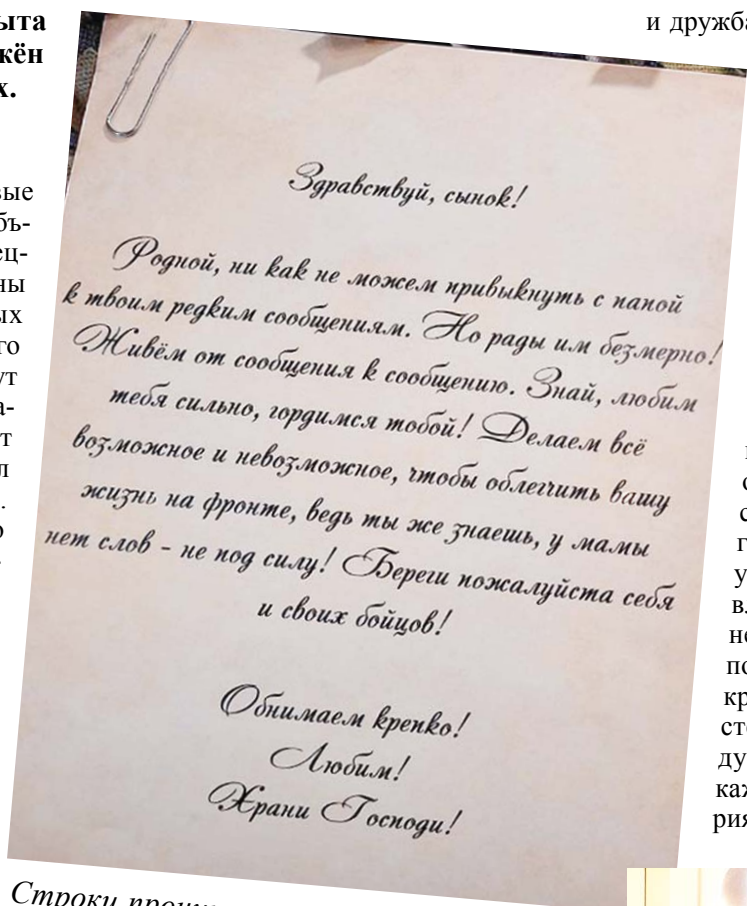 и дружба
Здравствуй, сынок!
Родной, ни как не можем привыкнуть с папой
к твоим редким сообщениям. Но рады им безмерно!
Живём от сообщения к сообщению. Знай, любим
тебя сильно, гордимся тобой! Делаем всё
возможное и невозможное, чтобы облегчить вашу
жизнь на фронте, ведь ты же знаешь, у мамы
нет слов - не под силу! Береги пожалуйста себя
и своих бойцов!
Обнимаем крепко!
Любим!
Храни Господи!
Строки